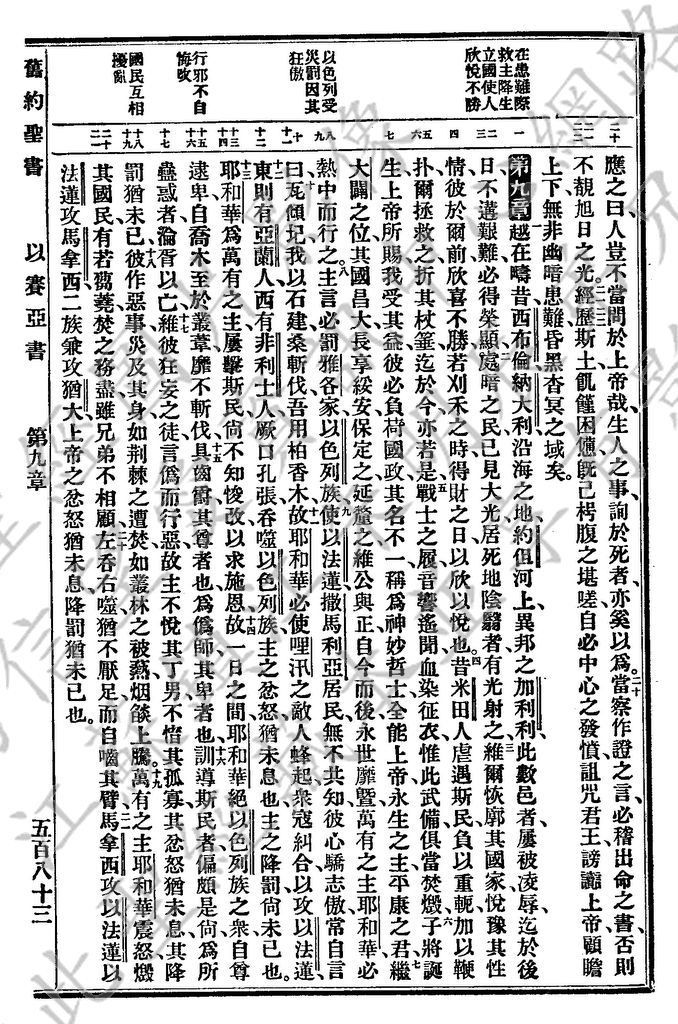 在患難際
救主降生
立國使人
欣悅不勝
以色列受
災罰因其
狂傲
行邪不自
悔改
國民互相
擾亂
應之曰人豈不當問於上帝哉、生人之事、詢於死者、亦奚以爲、當察作證之言、必稽出命之書、否則
不覩旭日之光、經歷斯土、飢饉困憊、旣己枵腹之堪嗟、自必中心之發憤、詛咒君王、謗讟上帝、顧瞻
上下、無非幽暗患難、昏黑杳冥之域矣。
第九章 越在疇昔、西布倫納大利沿海之地、約但河上、異邦之加利利、此數邑者、屢被凌辱、迄於後
日、不遘艱難、必得榮顯、處暗之民、已見大光、居死地陰翳者、有光射之、維爾恢廓其國家、悅豫其性
情、彼於爾前、欣喜不勝、若刈禾之時、得財之日、以欣以悅也。昔米田人虐遇斯民、負以重軛、加以鞭
扑、爾拯救之、折其杖箠、迄於今亦若是、戰士之履、音響遙聞、血染征衣、惟此武備、俱當焚燬、子將誕
生、上帝所賜、我受其益、彼必負荷國政、其名不一、稱爲神妙、哲士、全能上帝、永生之主、平康之君、繼
大闢之位、其國昌大、長享綏安、保定之、延釐之、維公與正、自今而後、永世靡曁、萬有之主耶和華、必
熱中而行之。主言必罰雅各家以色列族、使以法蓮撒馬利亞居民、無不共知、彼心驕志傲、常自言
曰、瓦傾圮、我以石建、桑斬伐、吾用柏香木、故耶和華必使哩汛之敵人蜂起、衆寇糾合、以攻以法蓮、
東則有亞蘭人、西有非利士人、厥口孔張、吞噬以色列族、主之忿怒猶未息也、主之降罰尙未已也。
耶和華爲萬有之主、屢擊斯民、尙不知悛改、以求施恩、故一日之間、耶和華絕以色列族之衆、自尊
逮卑、自喬木至於叢葦、靡不斬伐、具齒爵其尊者也、爲僞師其卑者也、訓導斯民者、偏頗是尙、爲所
蠱惑者、淪胥以亡、維彼狂妄之徒、言僞而行惡、故主不悅其丁男、不惜其孤寡、其忿怒猶未息、其降
罰猶未已、彼作惡事、災及其身、如荆棘之遭焚、如叢林之被爇、烟燄上騰、萬有之主耶和華震怒、燬
其國民、有若芻蕘、焚之務盡、雖兄弟不相顧、左吞右噬、猶不厭足、而自嚙其臂、馬拿西攻以法蓮、以
法蓮攻馬拿西、二族兼攻猶大、上帝之忿怒猶未息、降罰猶未已也。
舊約聖書 以賽亞書 第九章 五百八十三